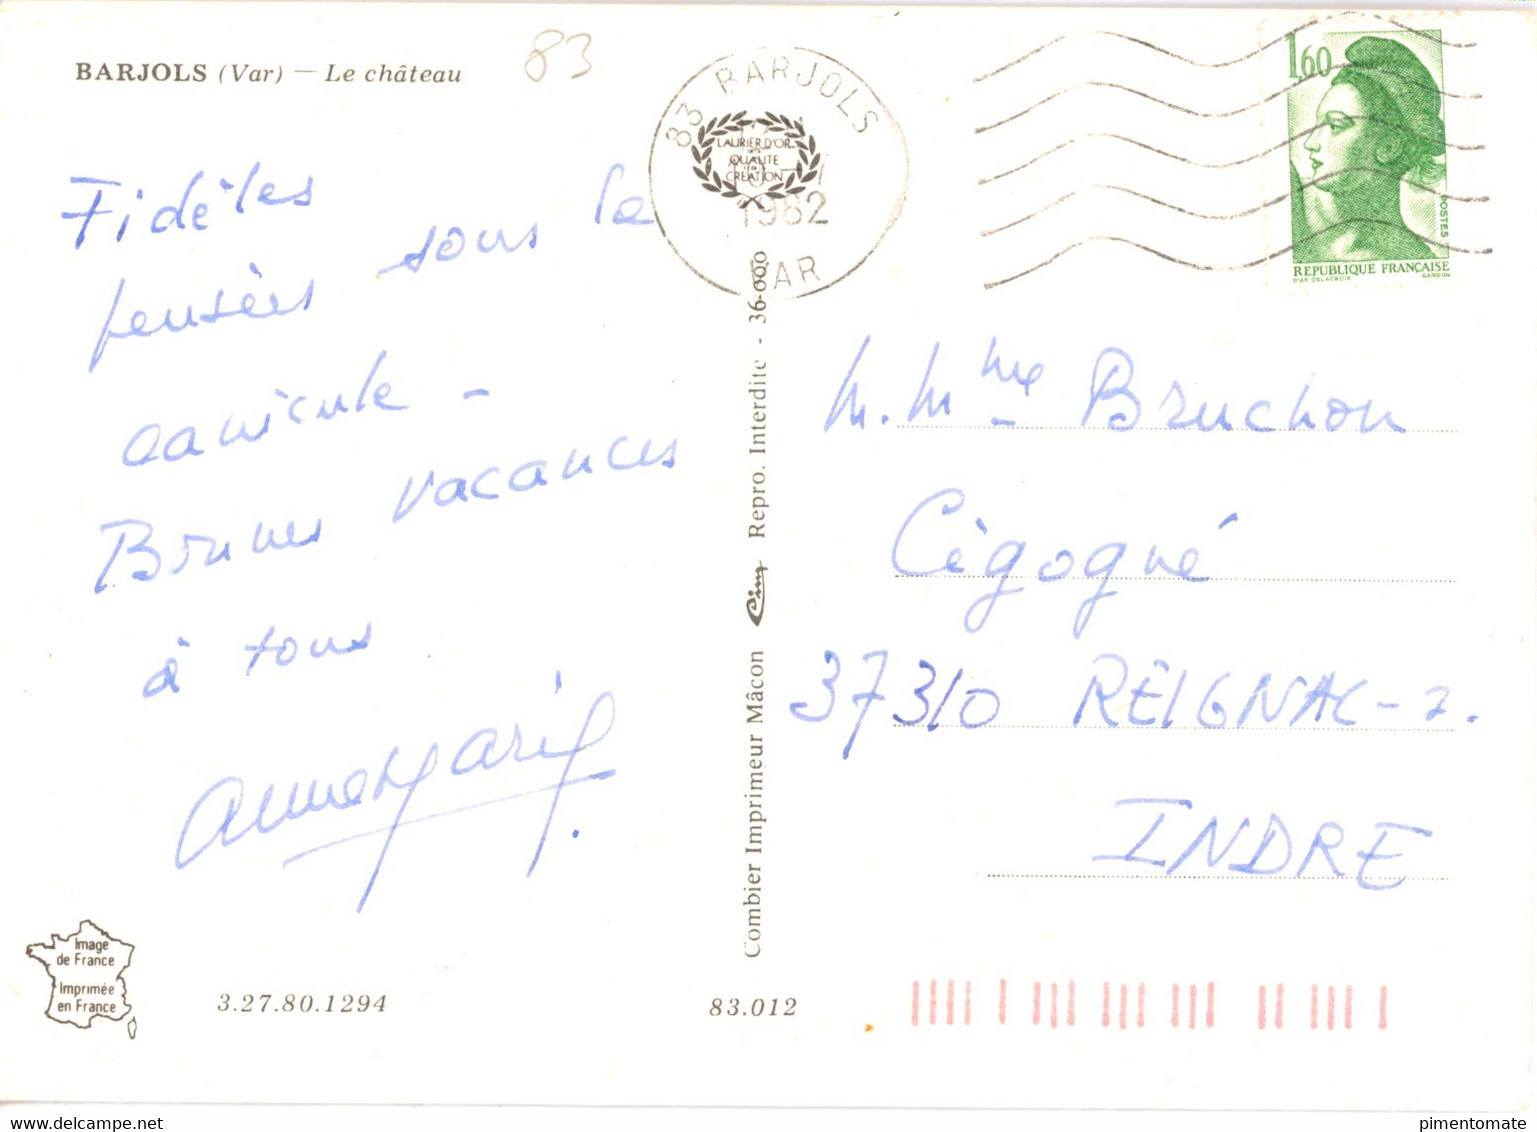 BARJOLS (Var) — Le château
83
83 BARJOLS
LAURIER D'OR
QUALITE
CREATION
1982
VAR
1,60
POSTES
REPUBLIQUE FRANÇAISE
D'AP. DELACROIX GANDON
Fidèles
pensées sous la
canicule -
Bonnes vacances
à tous
Anne Marie.
M. Mme Bruchon
Cigogné
37310 REIGNAC-
INDRE
Combier Imprimeur Mâcon Cim Repro. Interdite - 36-000
Image
de France
Imprimée
en France
3.27.80.1294
83.012
pimentomate